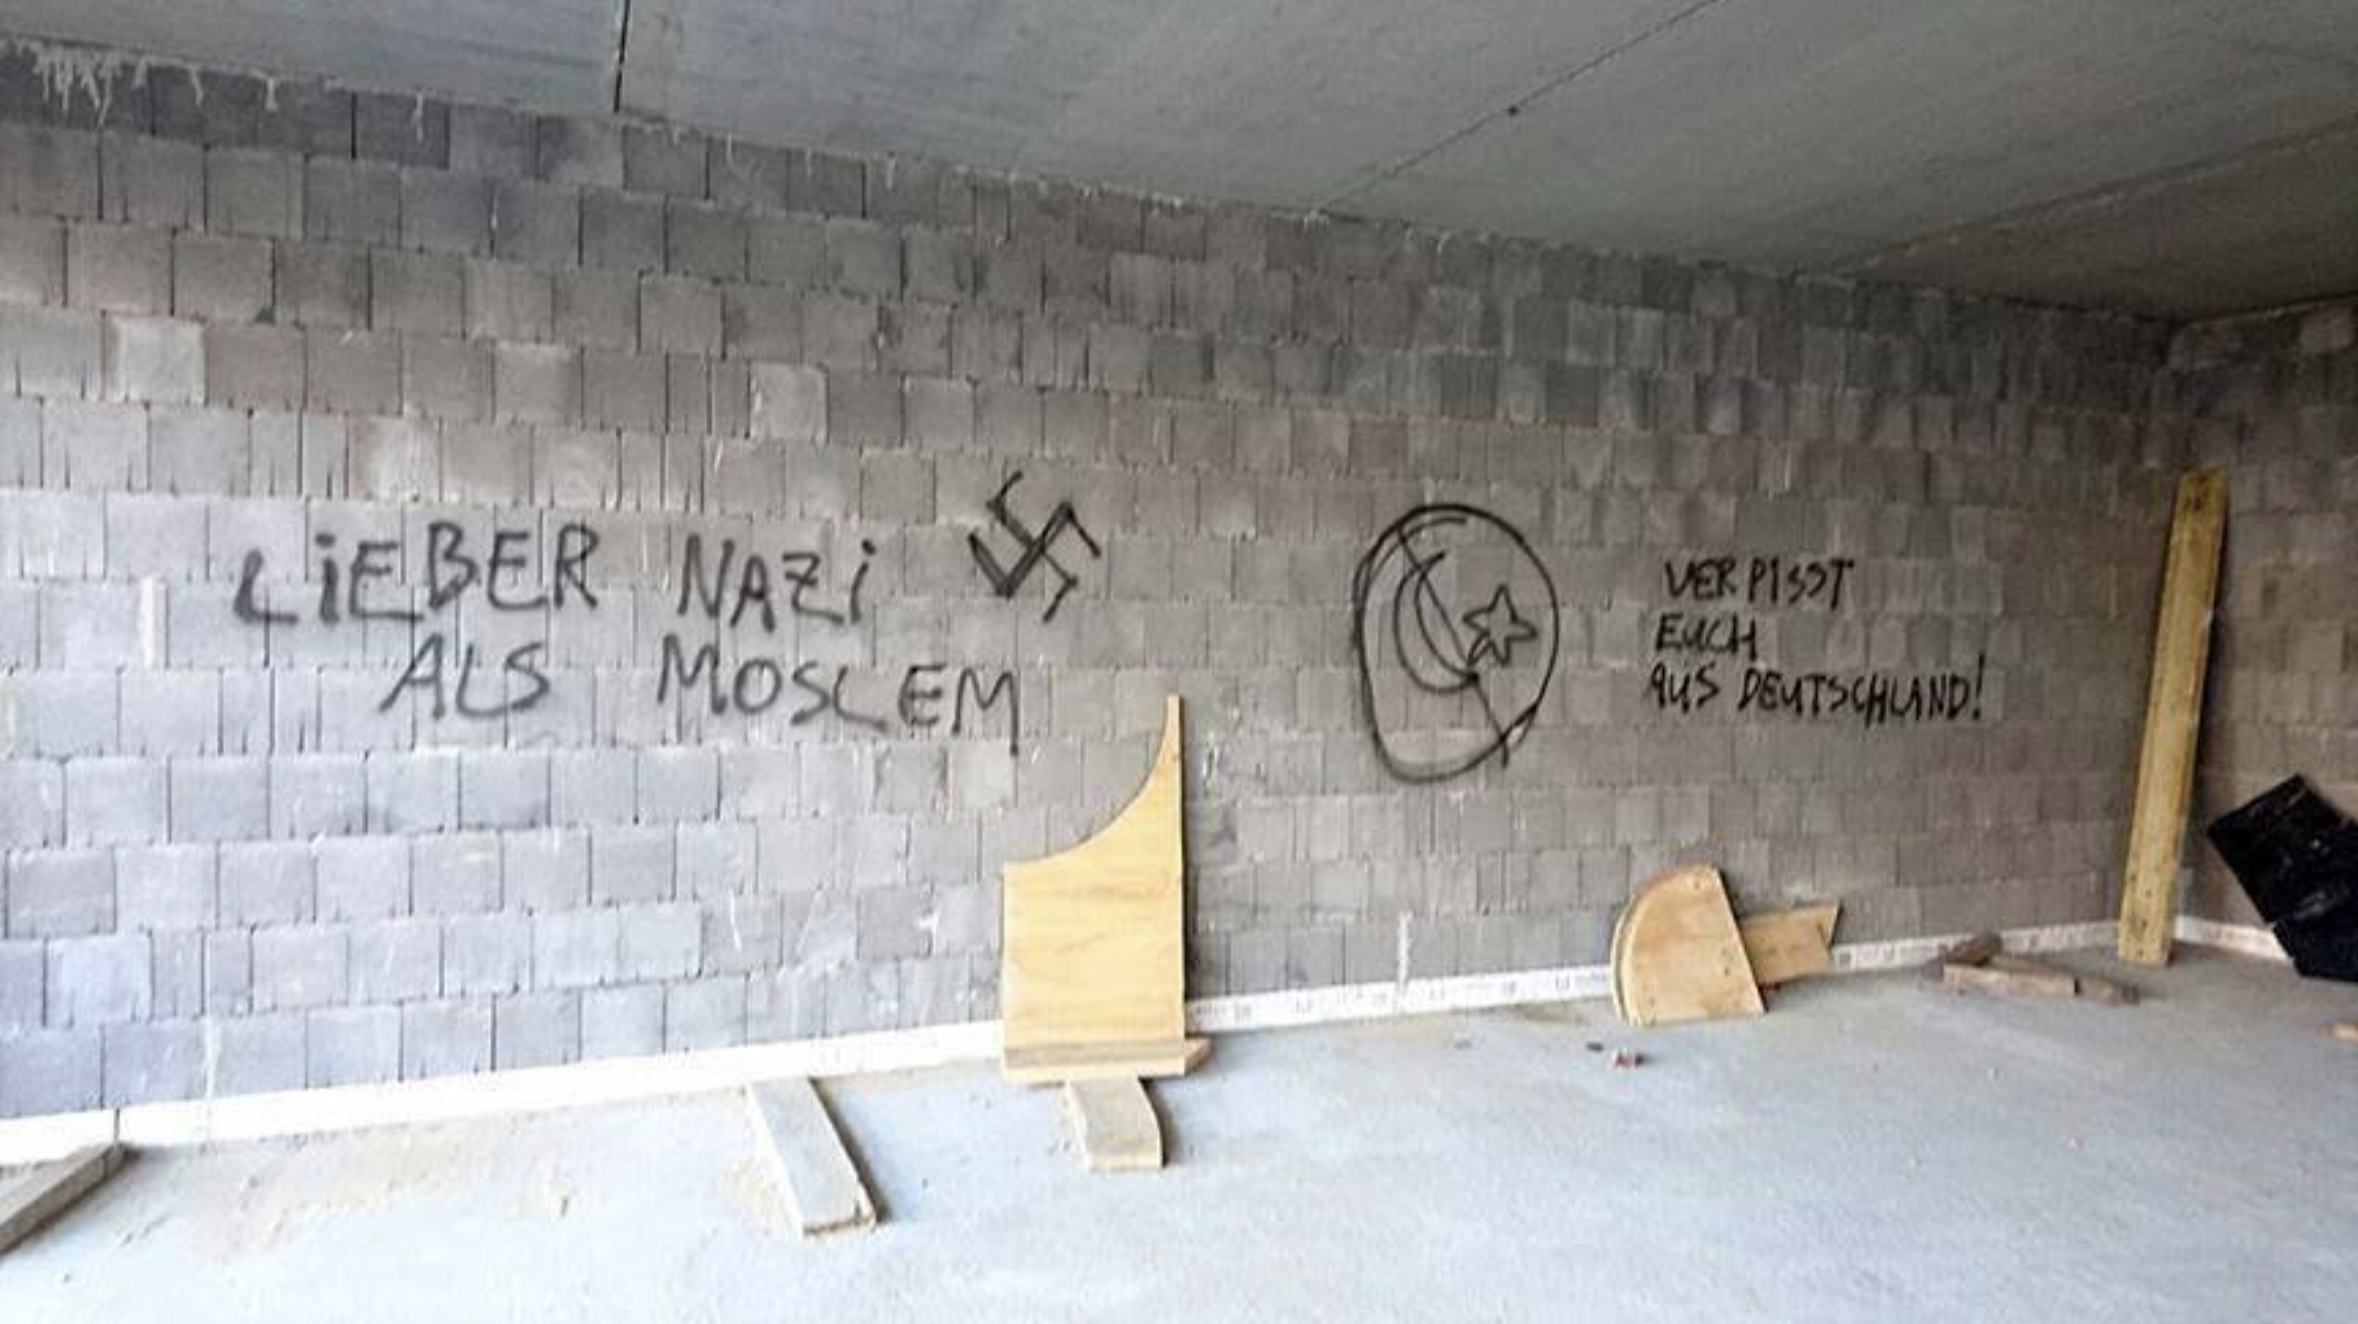 LiEBER NAZi
ALS MOSLEM
VERPISST
EUCH
AUS DEUTSCHLAND!